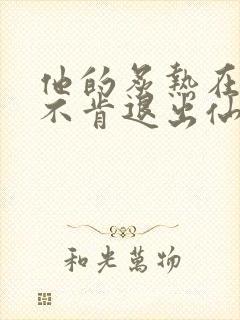 他的炙熱在
不肯退出仙
和光萬物